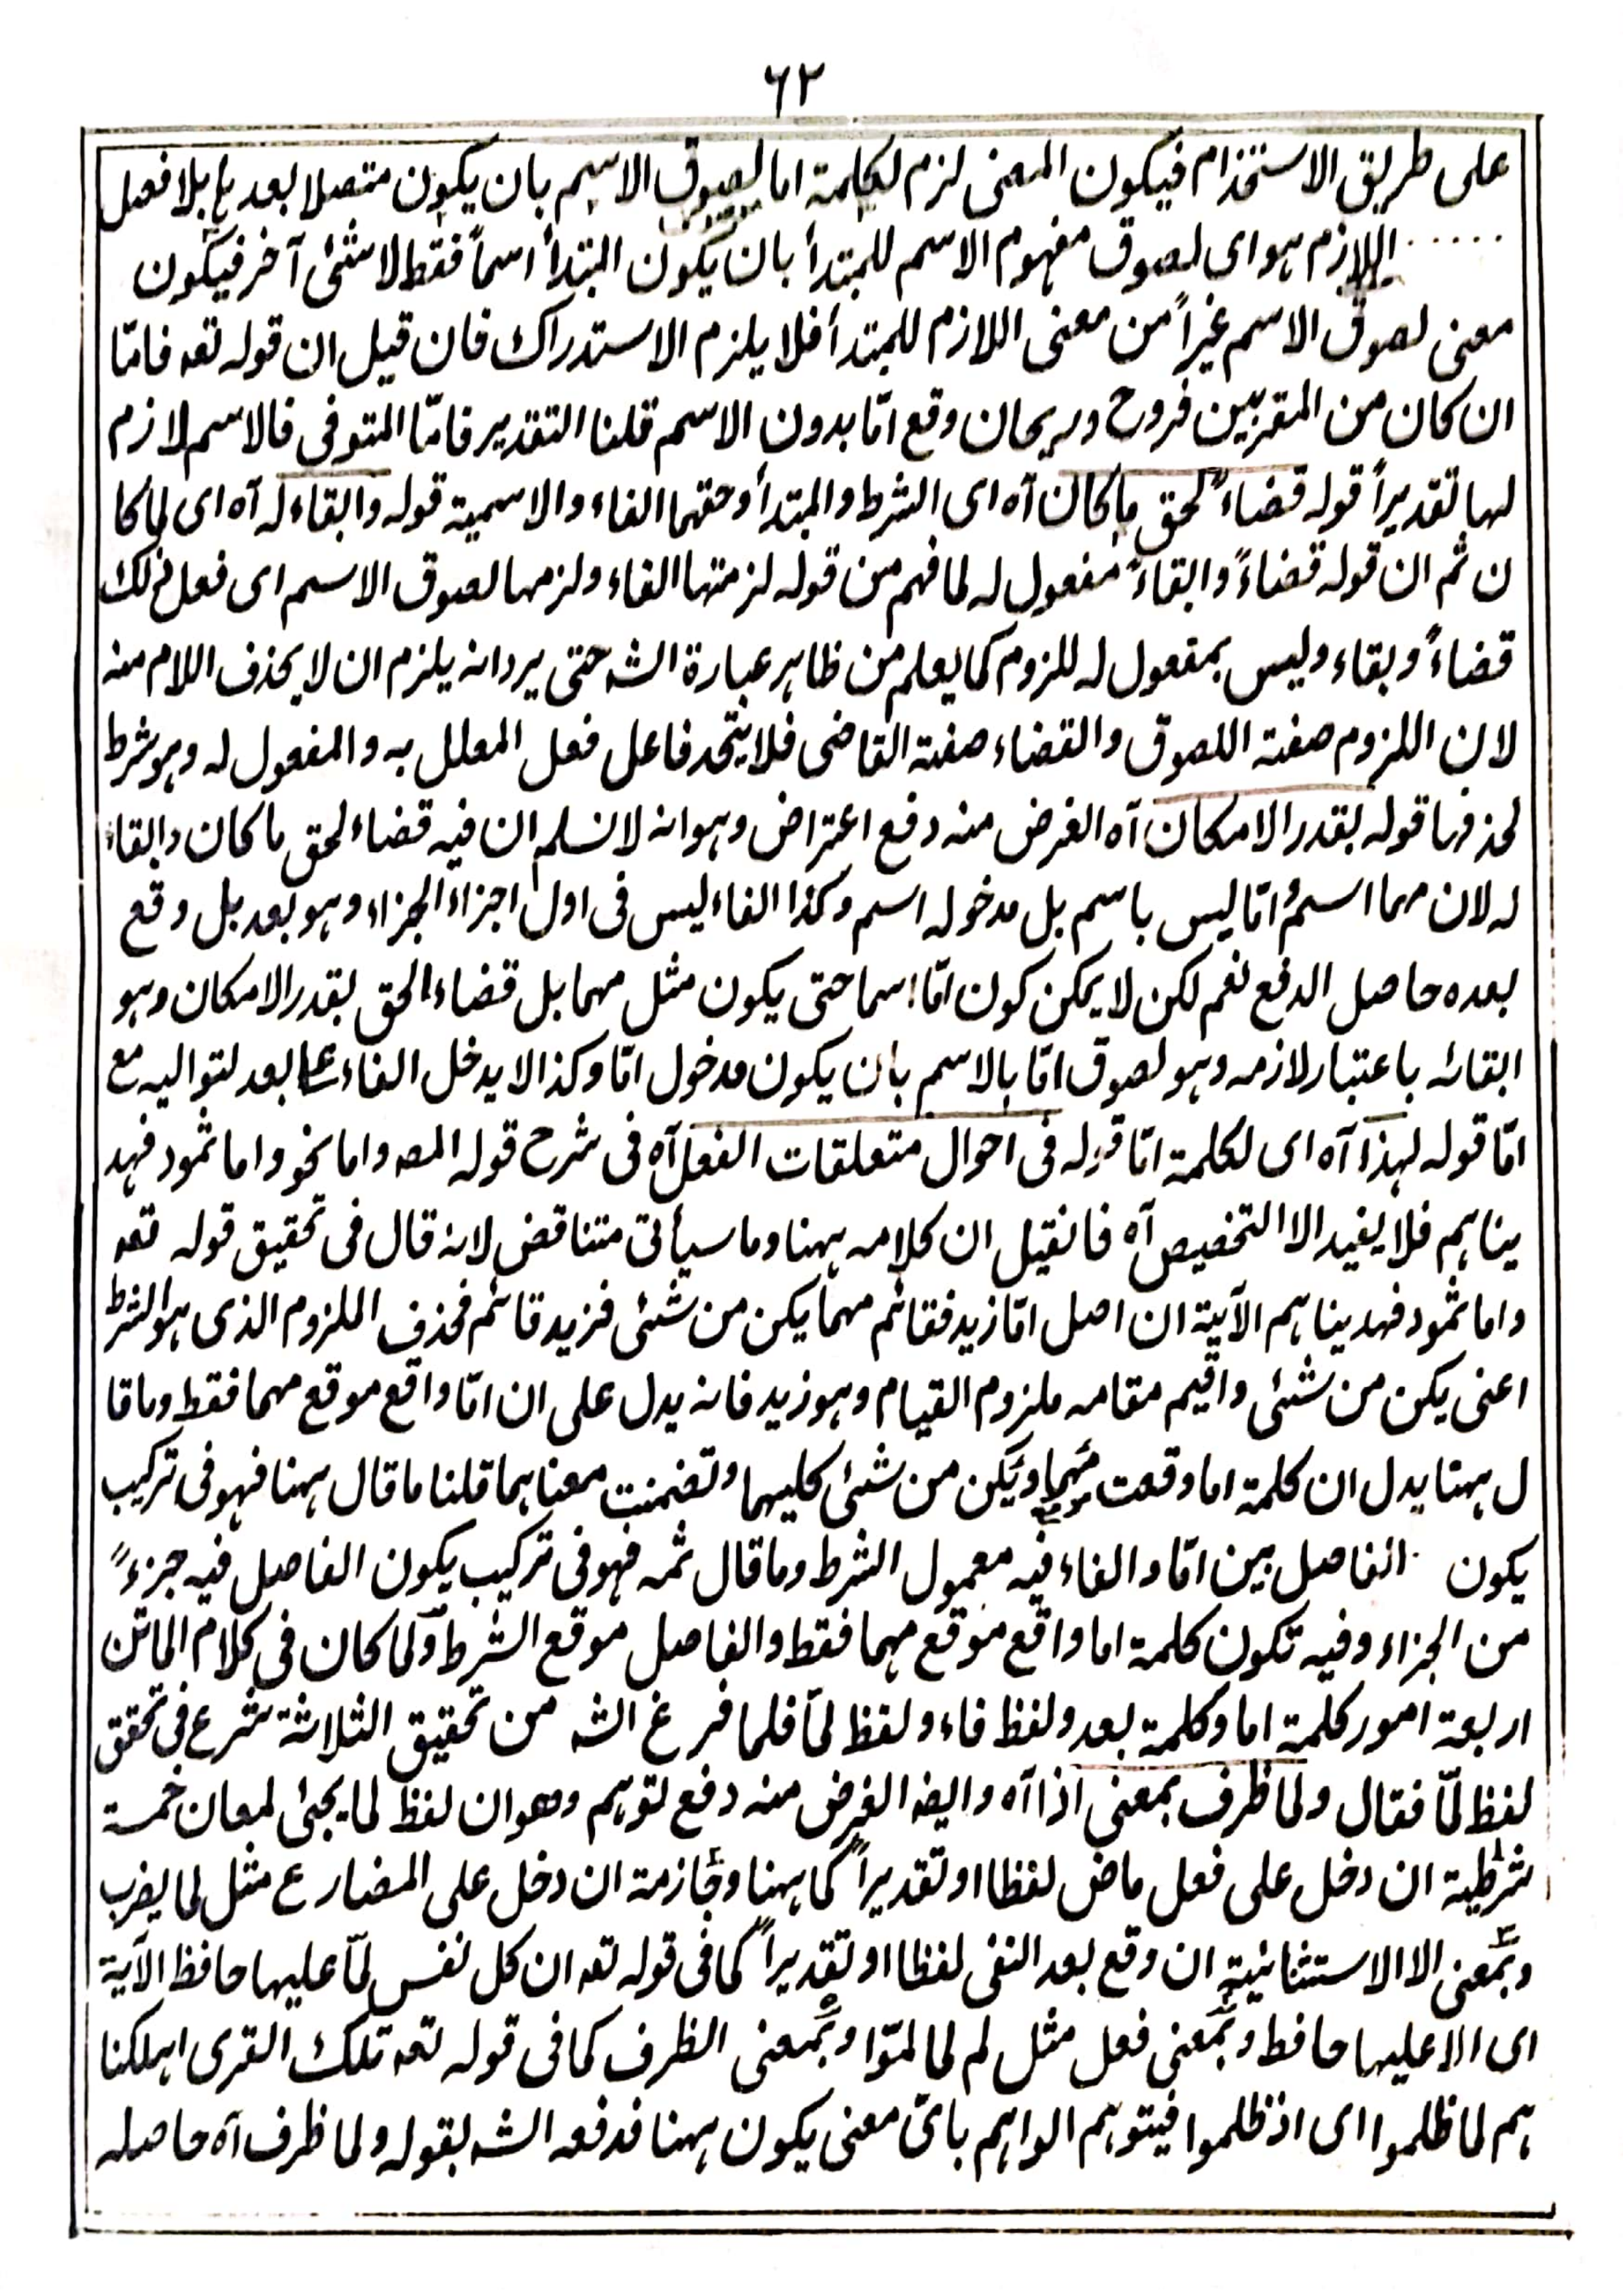 ٦٢
على طريق الاستخدام فيكون المعنى لزم لكلمة اما لصوق الاسم بان يكون متصلا بعد ها بلا فصل
..... اللازم هو اى لصوق مفهوم الاسم للمبتدأ بان يكون المبتدأ اسماً فقط لا شئ آخر فيكون
معنى لصوق الاسم غيراً من معنى اللازم للمبتدأ فلا يلزم الاستدراك فان قيل ان قوله تعه فامّا
ان كان من المقربين فروح وريحان وقع امّا بدون الاسم قلنا التقدير فامّا المتوفى فالاسم لازم
لها تقديراً قوله قضاءً لحق ما كان آه اى الشرط والمبتدأ وحقهما الفاء والاسمية قوله وابقاء له آه اى لما كا
ن ثم ان قوله قضاءً وابقاءً مفعول له لما فهم من قوله لزمتها الفاء ولزمها لصوق الاسم اى فعل ذلك
قضاءً وبقاء وليس بمفعول له للزوم كما يعلم من ظاهر عبارة الشه حتى يرد انه يلزم ان لا يحذف اللام منه
لان اللزوم صفة اللصوق والقضاء صفة القاضى فلا يتحد فاعل فعل المعلل به والمفعول له وهو شرط
لحذفها قوله بقدر الامكان آه الغرض منه دفع اعتراض وهو انه لا نسلم ان فيه قضاء لحق ما كان وابقاء
له لان مهما اسمٌ امّا ليس باسم بل مدخوله اسم وكذا الفاء ليس فى اول اجزاء الجزاء وهو بعد بل وقع
بعده حاصل الدفع نعم لكن لا يمكن كون امّا اسما حتى يكون مثل مهما بل قضاء الحق بقدر الامكان وهو
ابقائه باعتبار لازمه وهو لصوق امّا بالاسم بان يكون مدخول امّا وكذا لا يدخل الفاء على بعد لتواليه مع
امّا قوله لهذا آه اى لكلمة امّا قوله فى احوال متعلقات الفعل آه فى شرح قوله المصه واما نحو واما ثمود فهد
يناهم فلا يفيد الا التخصيص آه فانقيل ان كلامه ههنا وما سيأتى متناقض لانه قال فى تحقيق قوله تعه
واما ثمود فهديناهم الآية ان اصل امّا زيد فقائم مهما يكن من شئى فزيد قائم فحذف الملزوم الذى هو الشرط
اعنى يكن من شئى واقيم مقامه ملزوم القيام وهو زيد فانه يدل على ان امّا واقع موقع مهما فقط وما قا
ل ههنا يدل ان كلمة اما وقعت مهما ويكن من شئى كليهما وتضمنت معناهما قلنا ما قال ههنا فهو فى تركيب
يكون الفاصل بين امّا والفاء فيه معمول الشرط وما قال ثمه فهو فى تركيب يكون الفاصل فيه جزءً
من الجزاء وفيه تكون كلمة اما واقع موقع مهما فقط والفاصل موقع الشرط ولما كان فى كلام الماتن
اربعة امور كلمة اما وكلمة بعد ولفظ فاء ولفظ لمّا فلما فرغ الشه من تحقيق الثلاثة شرع فى تحقق
لفظ لمّا فقال ولما ظرف بمعنى اذا آه وايضه الغرض منه دفع لتوهم وهو ان لفظ لما يجئ لمعان خمسة
شرطية ان دخل على فعل ماض لفظا او تقديراً كما ههنا وجازمة ان دخل على المضارع مثل لما يضرب
وبمعنى الا الاستثنائية ان وقع بعد النفى لفظا او تقديراً كما فى قوله تعه ان كل نفس لمّا عليها حافظ الآية
اى الا عليها حافظ وبمعنى فعل مثل لم لما لمّوا وبمعنى الظرف كما فى قوله تعه تلك القرى اهلكنا
هم لما ظلموا اى اذ ظلموا فيتوهم الواهم باىّ معنى يكون ههنا فدفعه الشه بقوله ولما ظرف آه حاصله